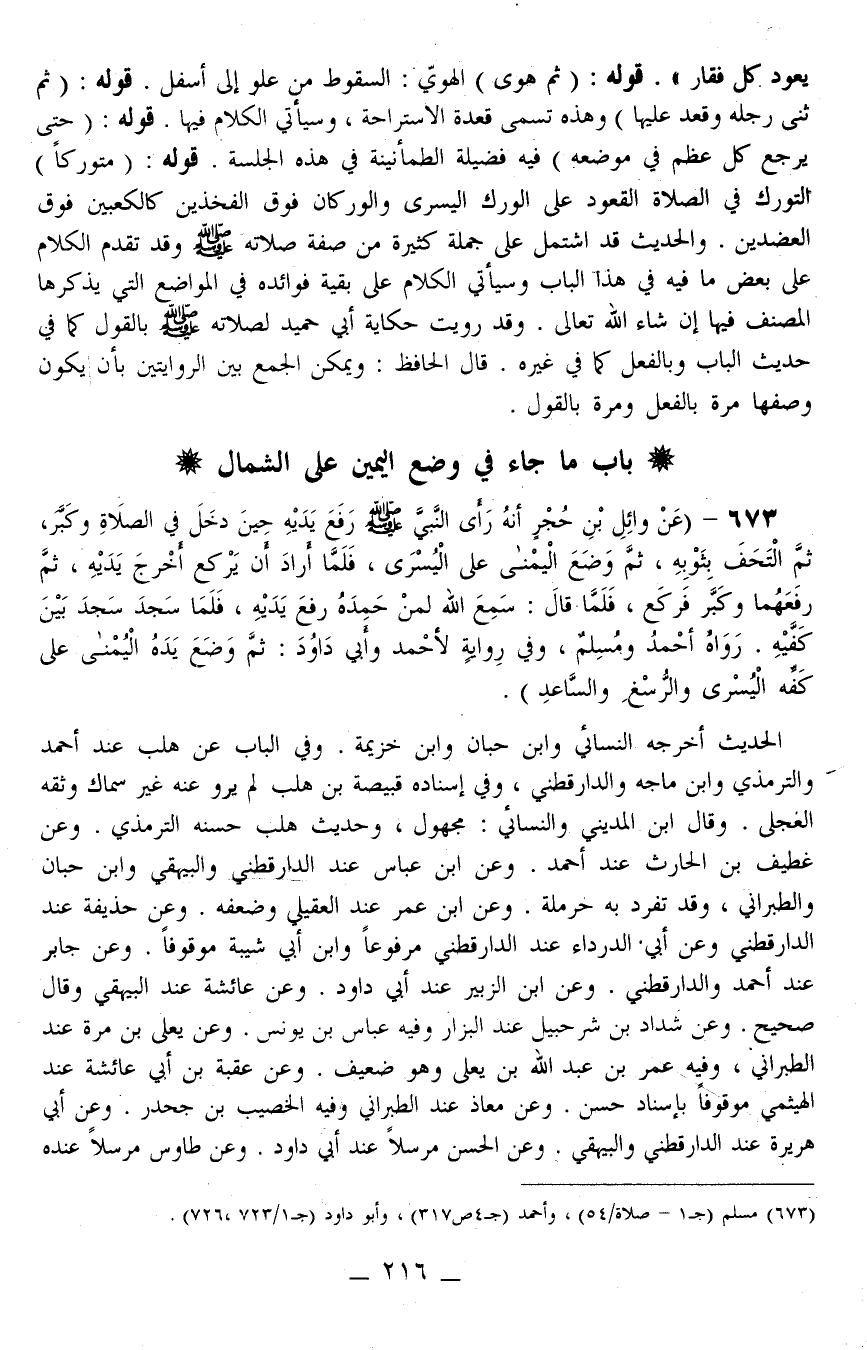 يعود كل فقار » . قوله : ( ثم هوى ) الهويّ : السقوط من علو إلى أسفل . قوله : ( ثم
ثنى رجله وقعد عليها ) وهذه تسمى قعدة الاستراحة ، وسيأتي الكلام فيها . قوله : ( حتى
يرجع كل عظم في موضعه ) فيه فضيلة الطمأنينة في هذه الجلسة . قوله : ( متوركاً )
التورك في الصلاة القعود على الورك اليسرى والوركان فوق الفخذين كالكعبين فوق
العضدين . والحديث قد اشتمل على جملة كثيرة من صفة صلاته ﷺ وقد تقدم الكلام
على بعض ما فيه في هذا الباب وسيأتي الكلام على بقية فوائده في المواضع التي يذكرها
المصنف فيها إن شاء الله تعالى . وقد رويت حكاية أبي حميد لصلاته ﷺ بالقول كما في
حديث الباب وبالفعل كما في غيره . قال الحافظ : ويمكن الجمع بين الروايتين بأن يكون
وصفها مرة بالفعل ومرة بالقول .
باب ما جاء في وضع اليمين على الشمال
٦٧٣ – (عَنْ وائِلِ بْنِ حُجْرٍ أنهُ رَأى النَّبيَّ ﷺ رَفَعَ يَدَيْهِ حِينَ دخَلَ في الصلَاةِ وكَبَّرَ،
ثمَّ الْتَحَفَ بِثَوْبِهِ ، ثمَّ وَضَعَ الْيمْنىٰ على الْيُسْرَى ، فَلَمَّا أرادَ أن يَرْكع أخْرجَ يَدَيْهِ ، ثمَّ
رفَعَهُما وكَبَّر فَركَع ، فَلَمَّا قالَ : سَمِعَ الله لمنْ حَمِدَهُ رفعَ يَدَيْهِ ، فَلَمَّا سجدَ سجدَ بَيْنَ
كَفَّيْهِ . رَوَاهُ أحْمدُ ومُسِلمٌ ، وفي رِوايةٍ لأحْمد وأبي دَاوُدَ : ثمَّ وَضَعَ يَدَهُ الْيُمْنىٰ على
كَفِّه الْيُسْرى والرُّسْغِ والسَّاعدِ ) .
الحديث أخرجه النسائي وابن حبان وابن خزيمة . وفي الباب عن هلب عند أحمد
والترمذي وابن ماجه والدارقطني ، وفي إسناده قبيصة بن هلب لم يرو عنه غير سماك وثقه
العجلى . وقال ابن المديني والنسائي : مجهول ، وحديث هلب حسنه الترمذي . وعن
غطيف بن الحارث عند أحمد . وعن ابن عباس عند الدارقطني والبيهقي وابن حبان
والطبراني ، وقد تفرد به حرملة . وعن ابن عمر عند العقيلي وضعفه . وعن حذيفة عند
الدارقطني وعن أبي الدرداء عند الدارقطني مرفوعاً وابن أبي شيبة موقوفاً . وعن جابر
عند أحمد والدارقطني . وعن ابن الزبير عند أبي داود . وعن عائشة عند البيهقي وقال
صحيح . وعن شداد بن شرحبيل عند البزار وفيه عباس بن يونس . وعن يعلى بن مرة عند
الطبراني ، وفيه عمر بن عبد الله بن يعلى وهو ضعيف . وعن عقبة بن أبي عائشة عند
الهيثمي موقوفاً بإسناد حسن . وعن معاذ عند الطبراني وفيه الخصيب بن جحدر . وعن أبي
هريرة عند الدارقطني والبيهقي . وعن الحسن مرسلاً عند أبي داود . وعن طاوس مرسلاً عنده
(٦٧٣) مسلم (جـ١ – صلاة/٥٤) ، وأحمد (جـ٤ص٣١٧) ، وأبو داود (جـ٧٢٣/١ ،٧٢٦) .
– ٢١٦ –